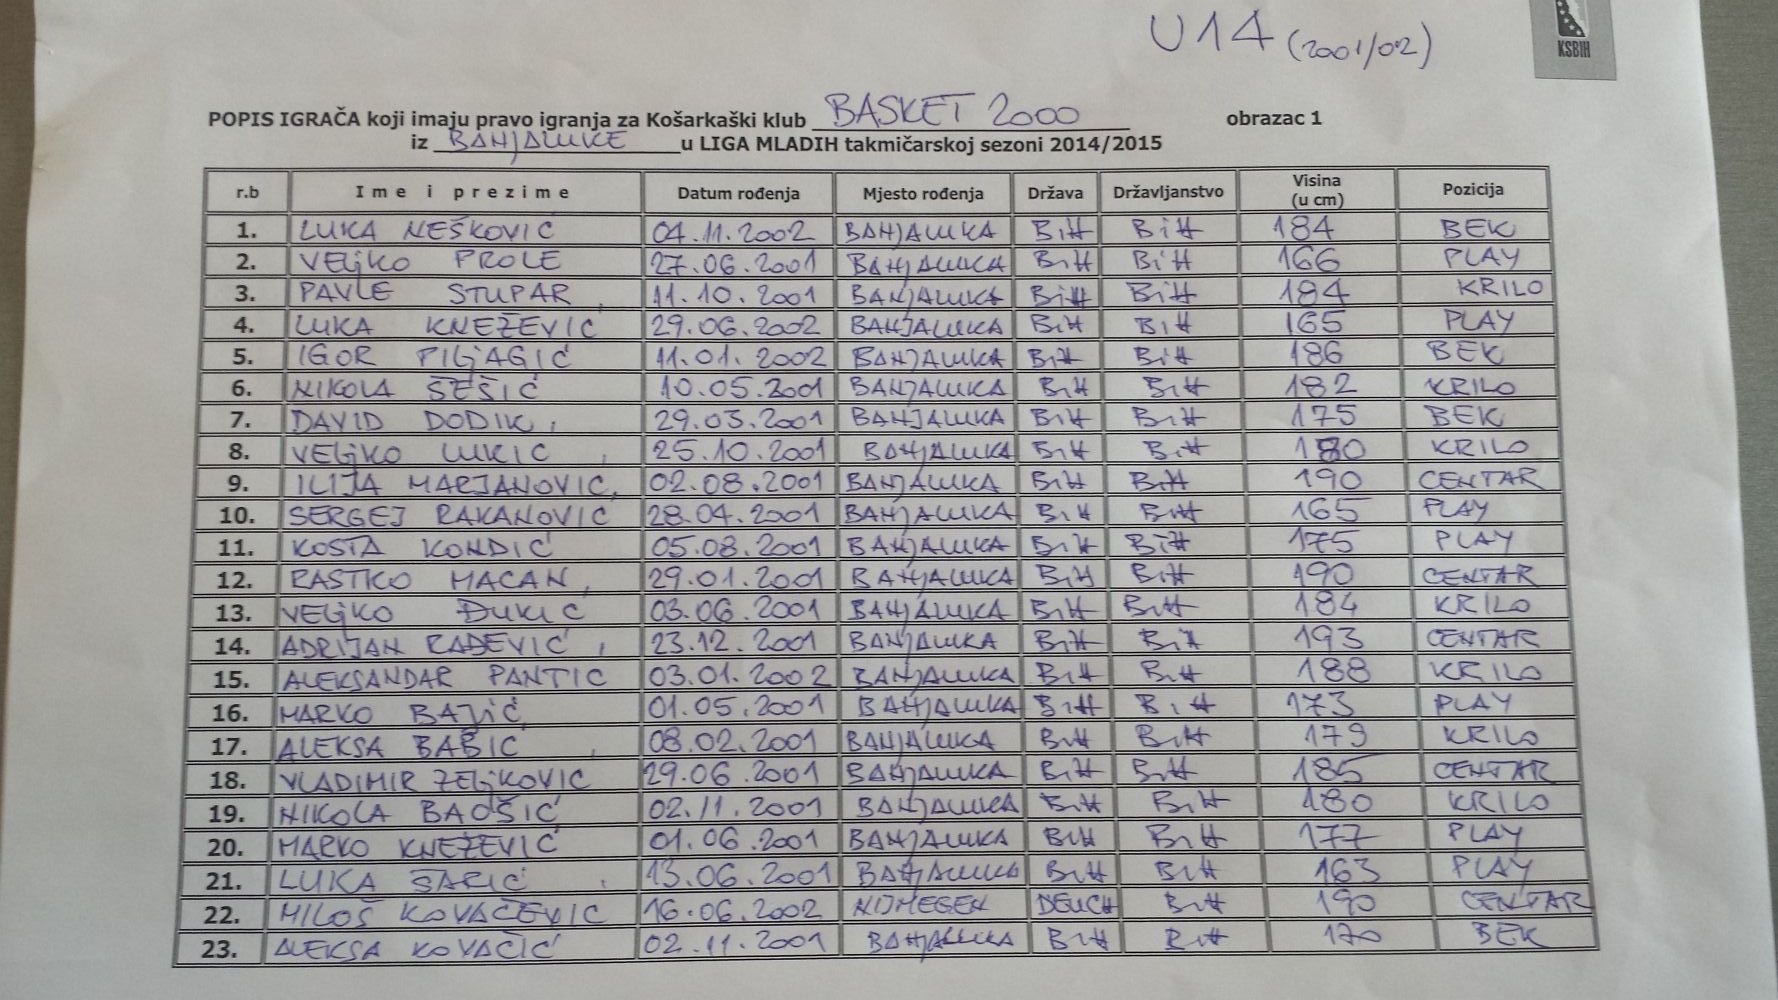 U14 (2001/02)
KSBIH
POPIS IGRAČA koji imaju pravo igranja za Košarkaški klub BASKET 2000 obrazac 1
iz BANJALUKE u LIGA MLADIH takmičarskoj sezoni 2014/2015
r.b Ime i prezime Datum rođenja Mjesto rođenja Država Državljanstvo Visina (u cm) Pozicija
1. LUKA NEŠKOVIĆ 04.11.2002 BANJALUKA BiH BiH 184 BEK
2. VELJKO PROLE 27.06.2001 BANJALUKA BiH BiH 166 PLAY
3. PAVLE STUPAR 11.10.2001 BANJALUKA BiH BiH 184 KRILO
4. LUKA KNEŽEVIĆ 29.06.2002 BANJALUKA BiH BiH 165 PLAY
5. IGOR PILJAGIĆ 11.01.2002 BANJALUKA BiH BiH 186 BEK
6. NIKOLA ŠEŠIĆ 10.05.2001 BANJALUKA BiH BiH 182 KRILO
7. DAVID DODIK 29.03.2001 BANJALUKA BiH BiH 175 BEK
8. VELJKO LUKIĆ 25.10.2001 BANJALUKA BiH BiH 180 KRILO
9. ILIJA MARJANOVIĆ 02.08.2001 BANJALUKA BiH BiH 190 CENTAR
10. SERGEJ RAKANOVIĆ 28.04.2001 BANJALUKA BiH BiH 165 PLAY
11. KOSTA KONDIĆ 05.08.2001 BANJALUKA BiH BiH 175 PLAY
12. RASTKO MACAN 29.01.2001 BANJALUKA BiH BiH 190 CENTAR
13. VELJKO ĐUKIĆ 03.06.2001 BANJALUKA BiH BiH 184 KRILO
14. ADRIJAN RAĐEVIĆ 23.12.2001 BANJALUKA BiH BiH 193 CENTAR
15. ALEKSANDAR PANTIĆ 03.01.2002 BANJALUKA BiH BiH 188 KRILO
16. MARKO BAJIĆ 01.05.2001 BANJALUKA BiH BiH 173 PLAY
17. ALEKSA BABIĆ 08.02.2001 BANJALUKA BiH BiH 179 KRILO
18. VLADIMIR ZELJKOVIĆ 29.06.2001 BANJALUKA BiH BiH 185 CENTAR
19. NIKOLA BAOŠIĆ 02.11.2001 BANJALUKA BiH BiH 180 KRILO
20. MARKO KNEŽEVIĆ 01.06.2001 BANJALUKA BiH BiH 177 PLAY
21. LUKA ŠARIĆ 13.06.2001 BANJALUKA BiH BiH 163 PLAY
22. MILOŠ KOVAČEVIĆ 16.06.2002 NIJMEGEN DEUCH BiH 190 CENTAR
23. ALEKSA KOVAČIĆ 02.11.2001 BANJALUKA BiH BiH 170 BEK